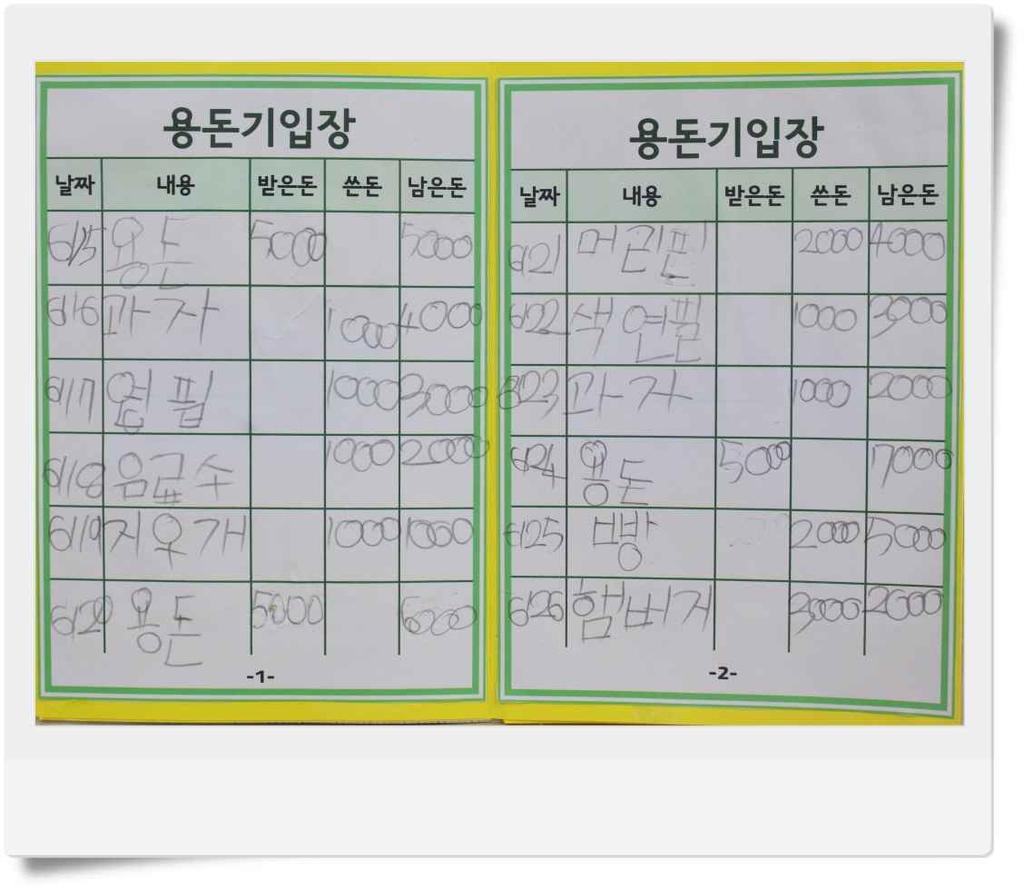 용돈기입장
날짜 내용 받은돈 쓴돈 남은돈
6/15 용돈 5000 5000
6/16 과자 1000 4000
6/17 연필 1000 3000
6/18 음료수 1000 2000
6/19 지우개 1000 1000
6/20 용돈 5000 6000
-1-
용돈기입장
날짜 내용 받은돈 쓴돈 남은돈
6/21 머리핀 2000 4000
6/22 색연필 1000 3000
6/23 과자 1000 2000
6/24 용돈 5000 7000
6/25 빵 2000 5000
6/26 햄버거 3000 2000
-2-